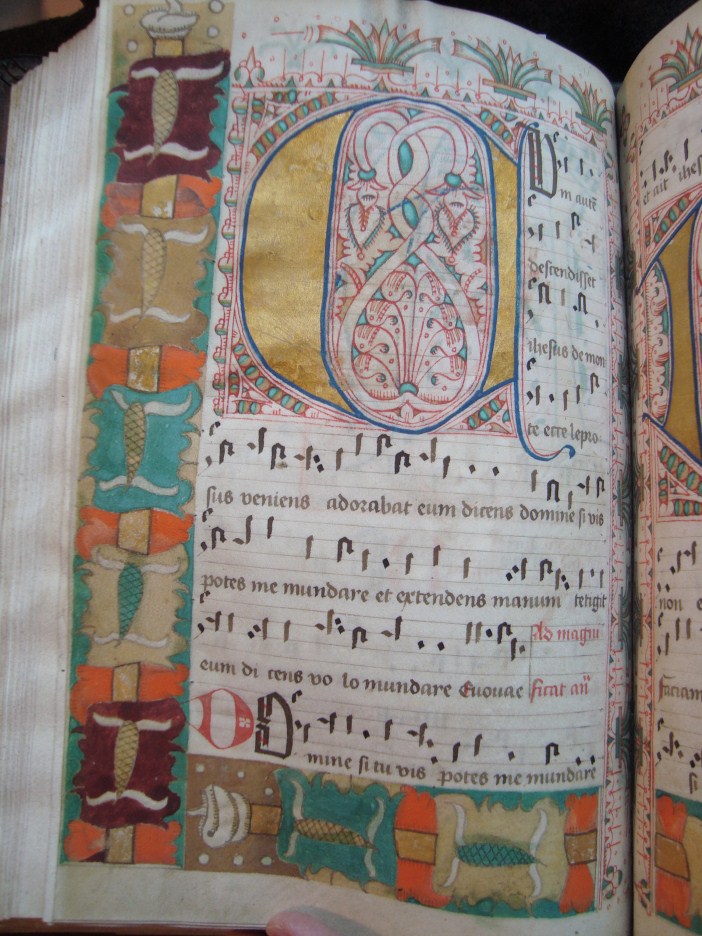 C
Um autē
descendisset
ihesus de mon
te ecce lepro
sus veniens adorabat eum dicens domine si vis
potes me mundare et extendens manum tetigit
eum di cens vo lo mundare Euouae
Ad magni
ficat añ
D
mine si tu vis potes me mundare
et ait ihes
non e
faciam
si